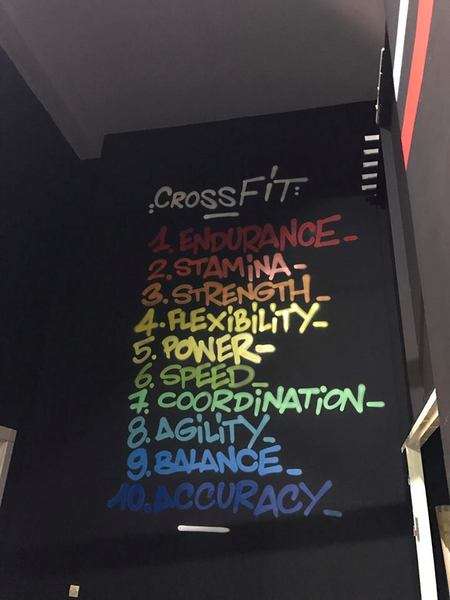 :CROSSFiT:
1. ENDURANCE-
2. STAMiNA-
3. STRENGTH_
4. FLEXiBiLiTY-
5. POWER-
6. SPEED_
7. COORDiNATiON-
8. AGiLiTY_
9. BALANCE_
10. ACCURACY_